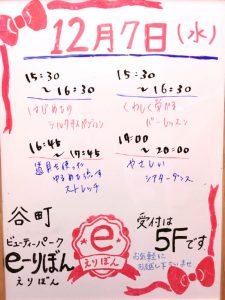 12月7日(水)
15:30
～16:30
はじめての
シルクサスペンション
15:30
～16:30
くわしく学べる
バーレッスン
16:45
～17:45
道具を使った
ゆるめる流す
ストレッチ
19:00
～20:00
やさしい
シアターダンス
谷町
ビューティーパーク
e-りぼん
えりぼん
e
えりぼん
受付は
5Fです
お気軽に
お越し下さいませ